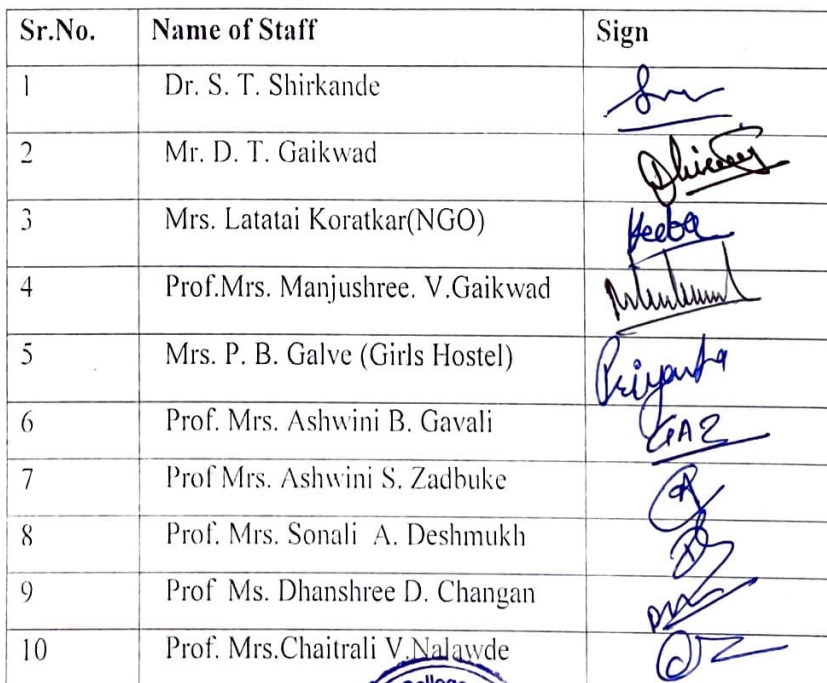 Sr.No. Name of Staff Sign
1 Dr. S. T. Shirkande
2 Mr. D. T. Gaikwad
3 Mrs. Latatai Koratkar(NGO)
4 Prof.Mrs. Manjushree. V.Gaikwad
5 Mrs. P. B. Galve (Girls Hostel) Priyanka
6 Prof. Mrs. Ashwini B. Gavali
7 Prof Mrs. Ashwini S. Zadbuke
8 Prof. Mrs. Sonali A. Deshmukh
9 Prof Ms. Dhanshree D. Changan
10 Prof. Mrs.Chaitrali V.Nalawde
College